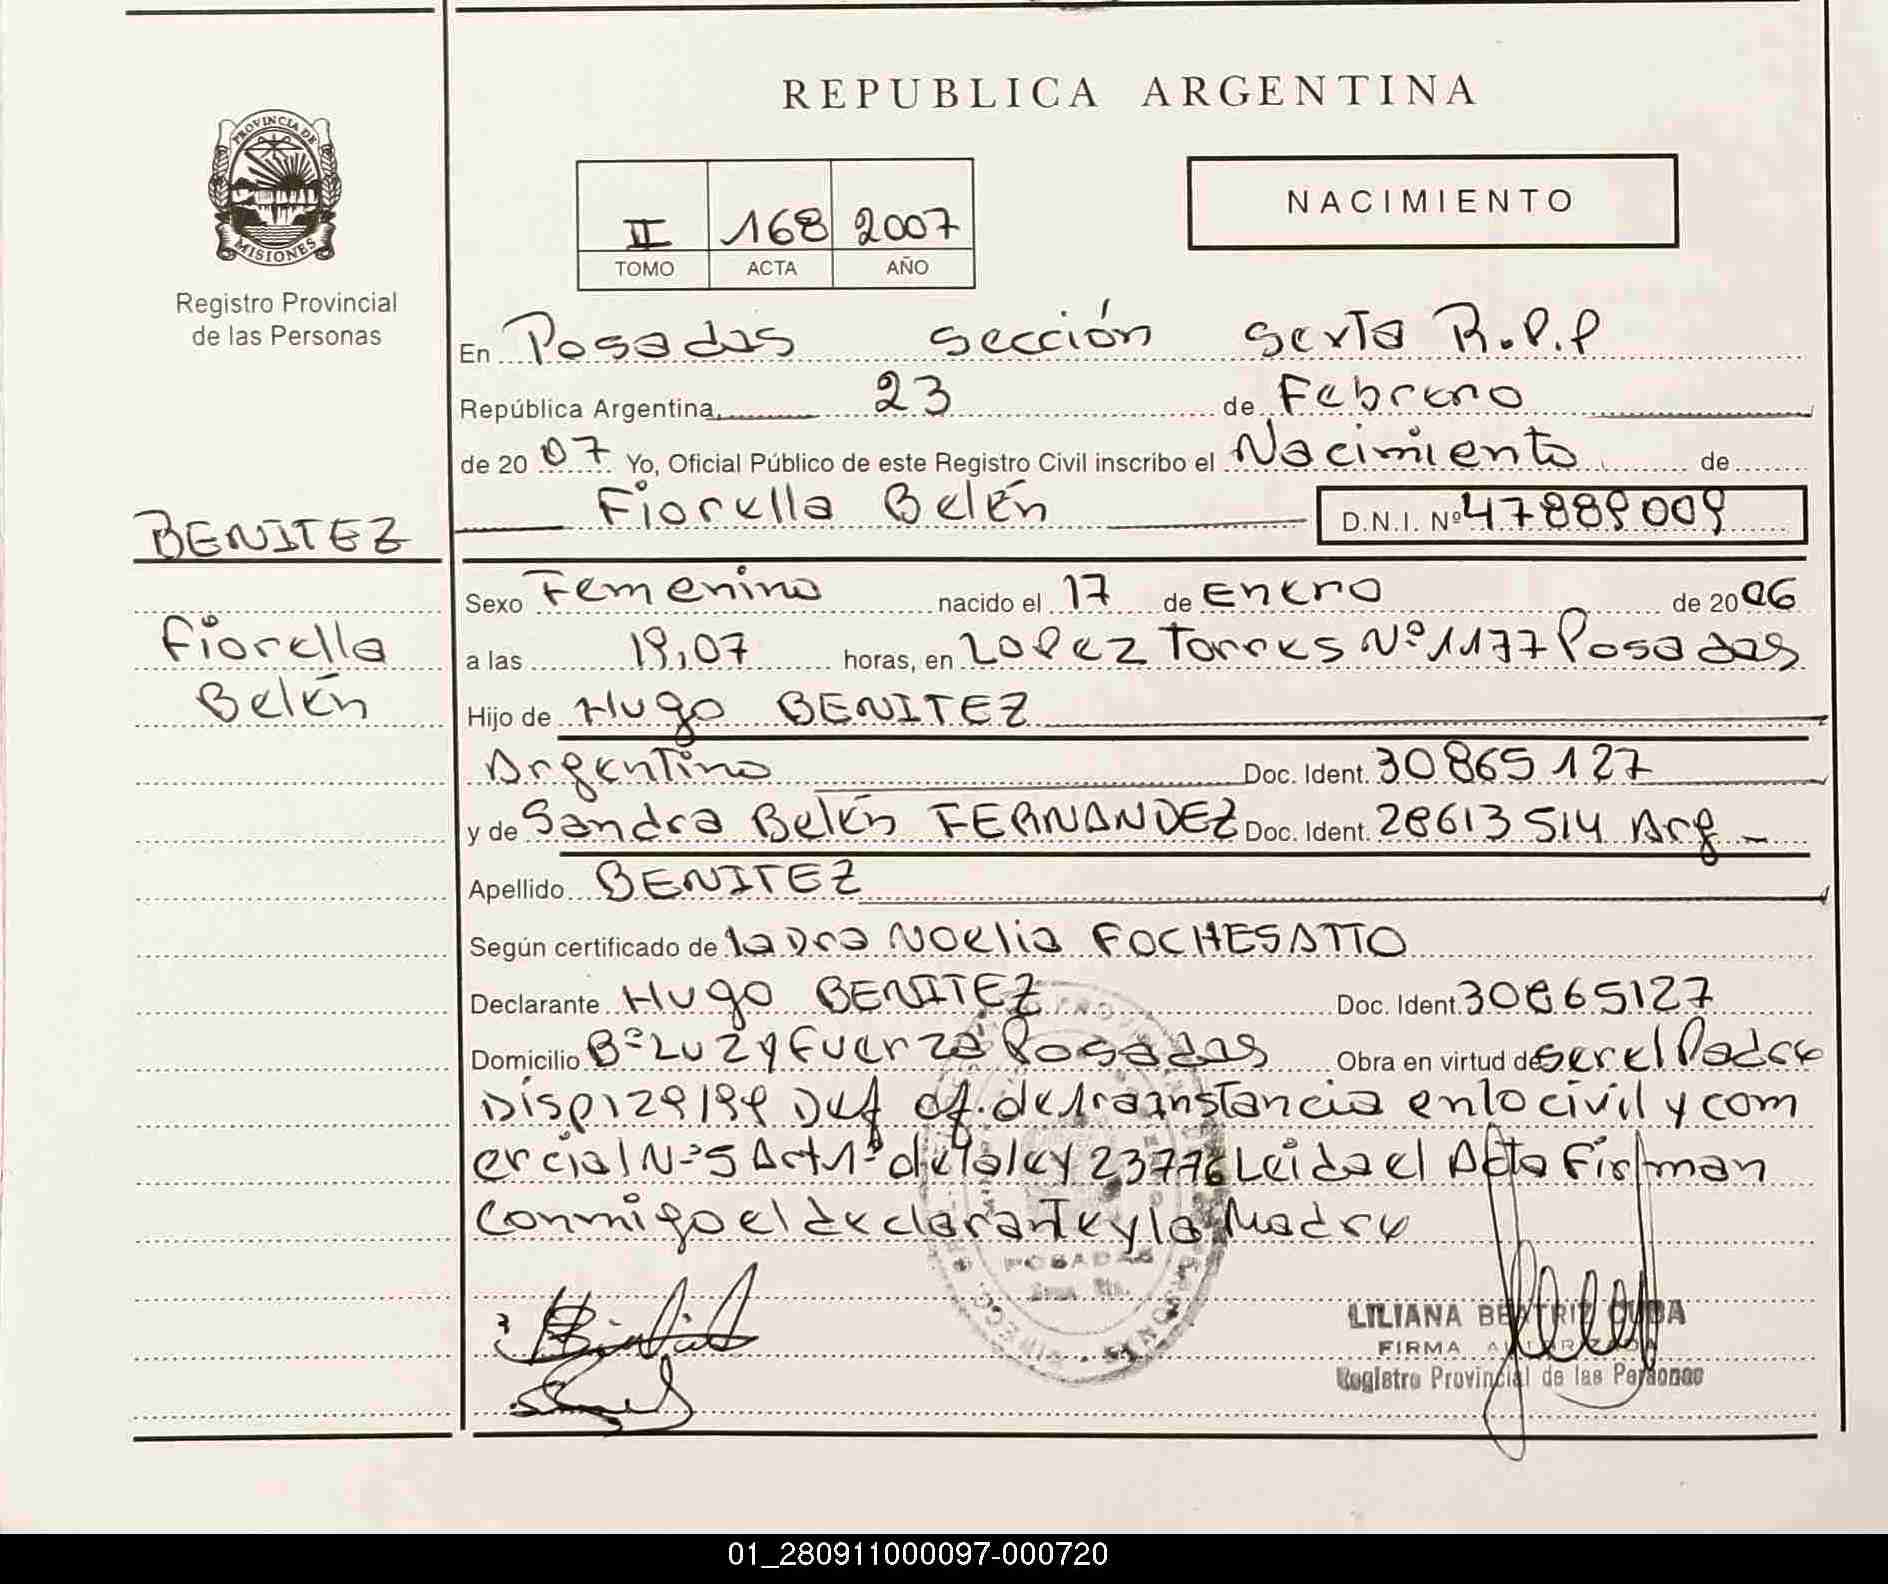 REPUBLICA ARGENTINA
PROVINCIA DE
MISIONES
Registro Provincial
de las Personas
NACIMIENTO
II 168 2007
TOMO ACTA AÑO
En Posadas sección sexta R.P.P
República Argentina, 23 de Febrero
de 2007 Yo, Oficial Público de este Registro Civil inscribo el Nacimiento de
Fiorella Belén D.N.I. Nº 47889009
BENITEZ
Fiorella
Belén
Sexo Femenino nacido el 17 de Enero de 2006
a las 19,07 horas, en Lopez Torres Nº 1177 Posadas
Hijo de Hugo BENITEZ
Argentino Doc. Ident. 30865127
y de Sandra Belén FERNANDEZ Doc. Ident. 28613514 Arg
Apellido BENITEZ
Según certificado de la Dra Noelia FOCHESATTO
Declarante Hugo BENITEZ Doc. Ident. 30865127
Domicilio Bº Luz y Fuerza Posadas Obra en virtud de ser el Padre
Disp 129/99 Def of. de 1ra instancia en lo civil y com
ercial Nº 5 Art 1º de la ley 23776 Leida el Acta Firman
Conmigo el declarante y la Madre
POSADAS
LILIANA BEATRIZ CUBA
FIRMA AUTORIZADA
Registro Provincial de las Personas
01_280911000097-000720